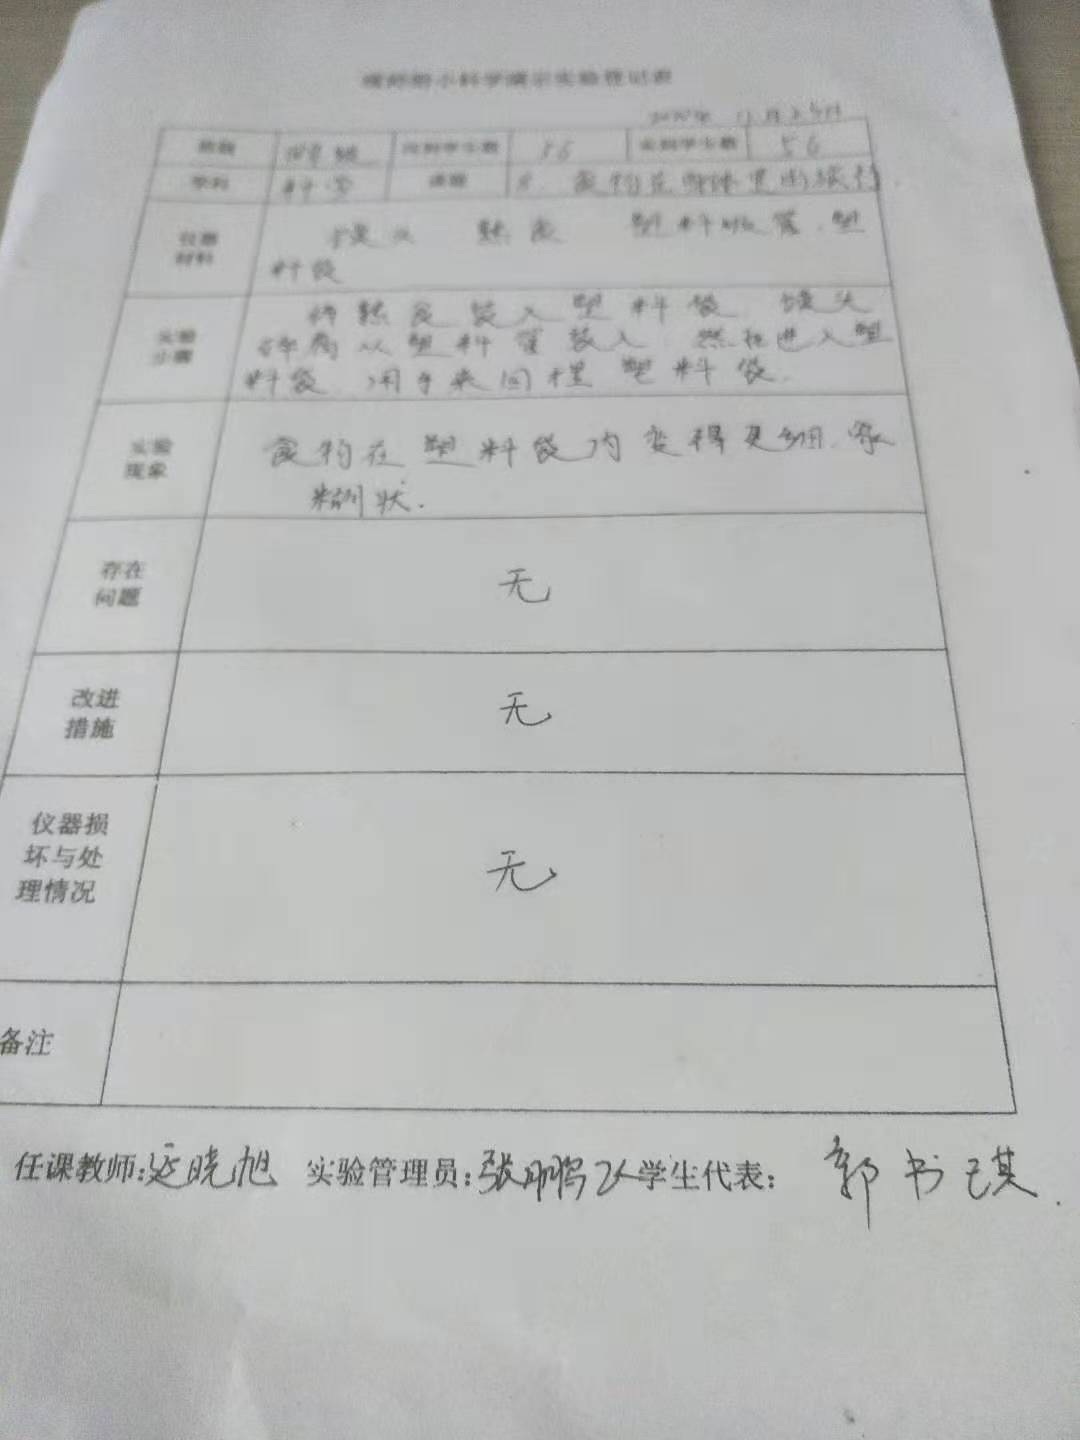 小科学演示实验登记表
班级 应到学生数 56 实到学生数 56
学科 科学 课题 8. 食物在身体里的旅行
仪器材料 馒头 熟食 塑料吸管、塑
料袋
实验步骤 将熟食装入塑料袋 馒头
料袋、用手来回 塑料袋.
实验现象 食物在塑料袋内变得更细、
糊状.
存在问题 无
改进措施 无
仪器损坏与处理情况 无
备注
任课教师: 晓旭 实验管理员: 张鹏飞 学生代表: 郭书琪